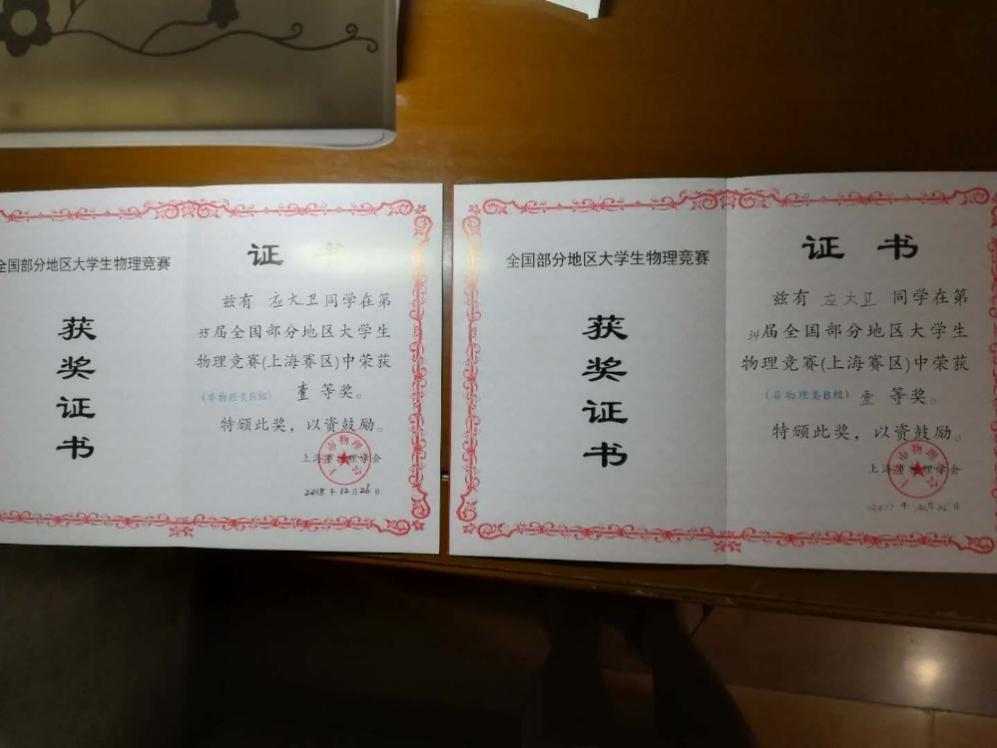 全国部分地区大学生物理竞赛
获奖证书
证书
兹有 应大卫 同学在第
35届全国部分地区大学生
物理竞赛(上海赛区)中荣获
(非物理类B组) 壹 等奖。
特颁此奖，以资鼓励。
上海市物理学会
2018年12月26日
全国部分地区大学生物理竞赛
获奖证书
证书
兹有 应大卫 同学在第
34届全国部分地区大学生
物理竞赛(上海赛区)中荣获
(非物理类B组) 壹 等奖。
特颁此奖，以资鼓励。
上海市物理学会
2017年 月 日